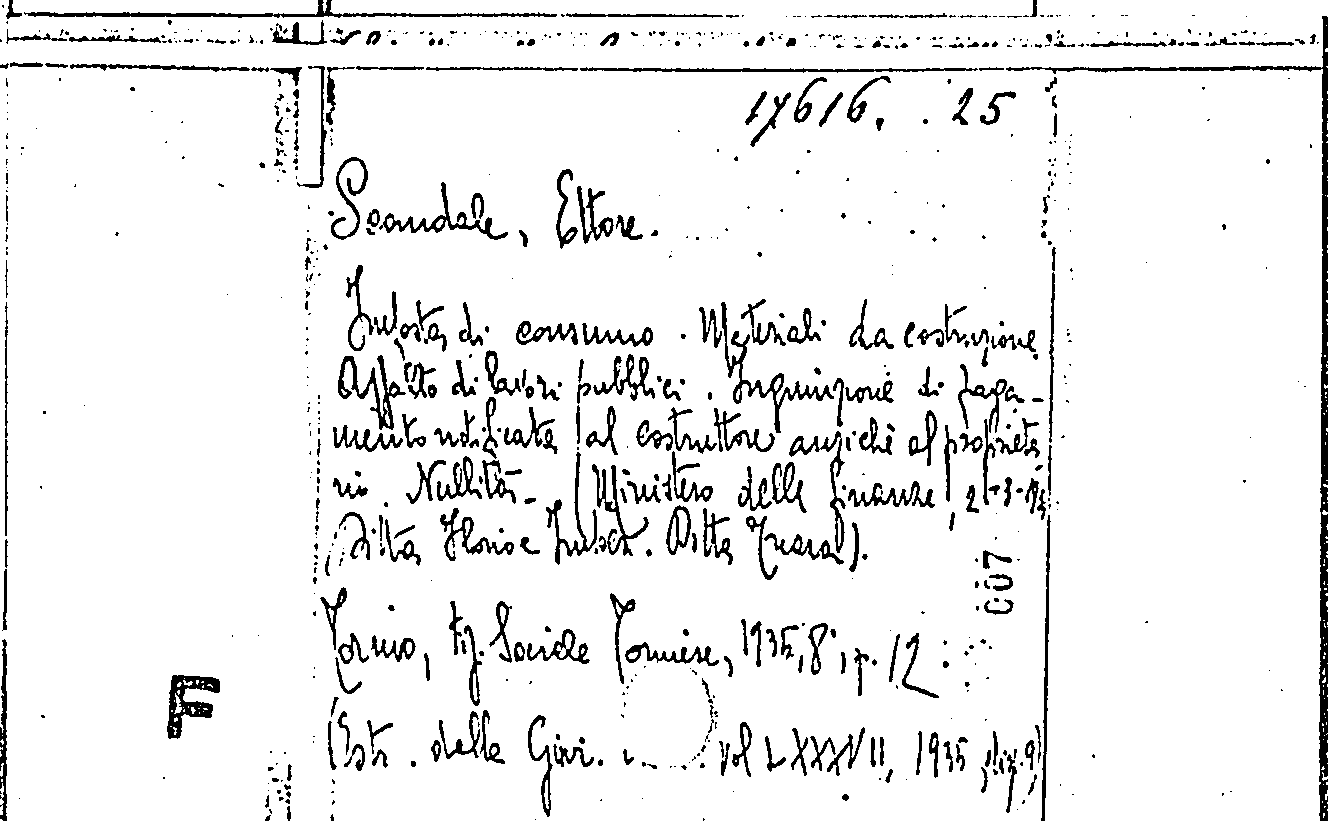 17616. . 25
Scandale, Ettore.
Imposta di consumo. Materiali da costruzione
Appalto di lavori pubblici. Ingiunzione di paga-
mento notificata al costruttore anziché al proprieta
rio. Nullità - (Ministero delle finanze, 2-3-
Ditta c. Ditta
007
Torino, tip. Sociale Torinese, 1935, 8°, p. 12
F
(Estr. dalla Giur. vol LXXXVII, 1935,